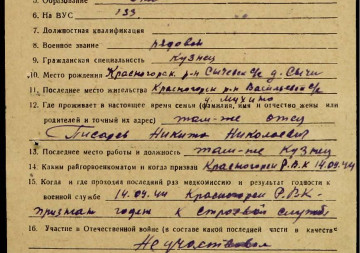 5. Образование
6. На ВУС 133
7. Должностная квалификация
8. Военное звание рядовой
9. Гражданская специальность кузнец
10. Место рождения Красногорск. р-н Сычевск с/с д. Сычи
11. Последнее место жительства Красногорск р-н Васильевск с/с
д. Мухино
12. Где проживает в настоящее время семья (фамилия, имя и отчество жены или
родителей и точный их адрес) там-же отец
Никита Николаевич
13. Последнее место работы и должность там-же кузнец
14. Каким райгорвоенкоматом и когда призван Красногорск Р.В.К 14.09.44
15. Когда и где проходил последний раз медкомиссию и результат годности к
военной службе 14.09.44 Красногорск Р.В.К-
признан годен к строевой службе
16. Участие в Отечественной войне (в составе какой последней части и в качестве
Не участвовал